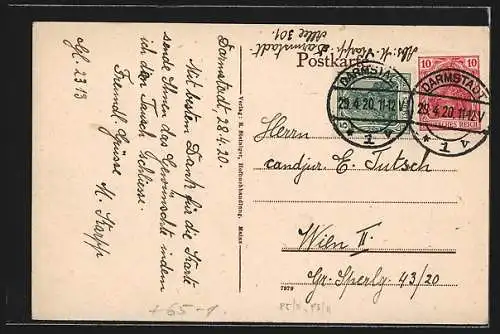 Gl. 2313
Darmstadt, 28.4.20.
Mit besten Dank für die Karte
sende Ihnen das Gewünschte indem
ich den Tausch schliesse.
Freundl. Grüsse
M. Knapp
Verlag: R. Hofbuchhandlung, Mainz
Abs: M. Knapp,
Darmstadt
Allee 301
Postkarte
DARMSTADT
29.4.20.11-12.V
* 1 v
10 10
DEUTSCHES REICH
DARMSTADT
29.4.20.11-12.V
* 1 v
Herrn
candjur. E. Jutsch
Wien II.
Gr. Sperlg. 43/20
7979
+65-1